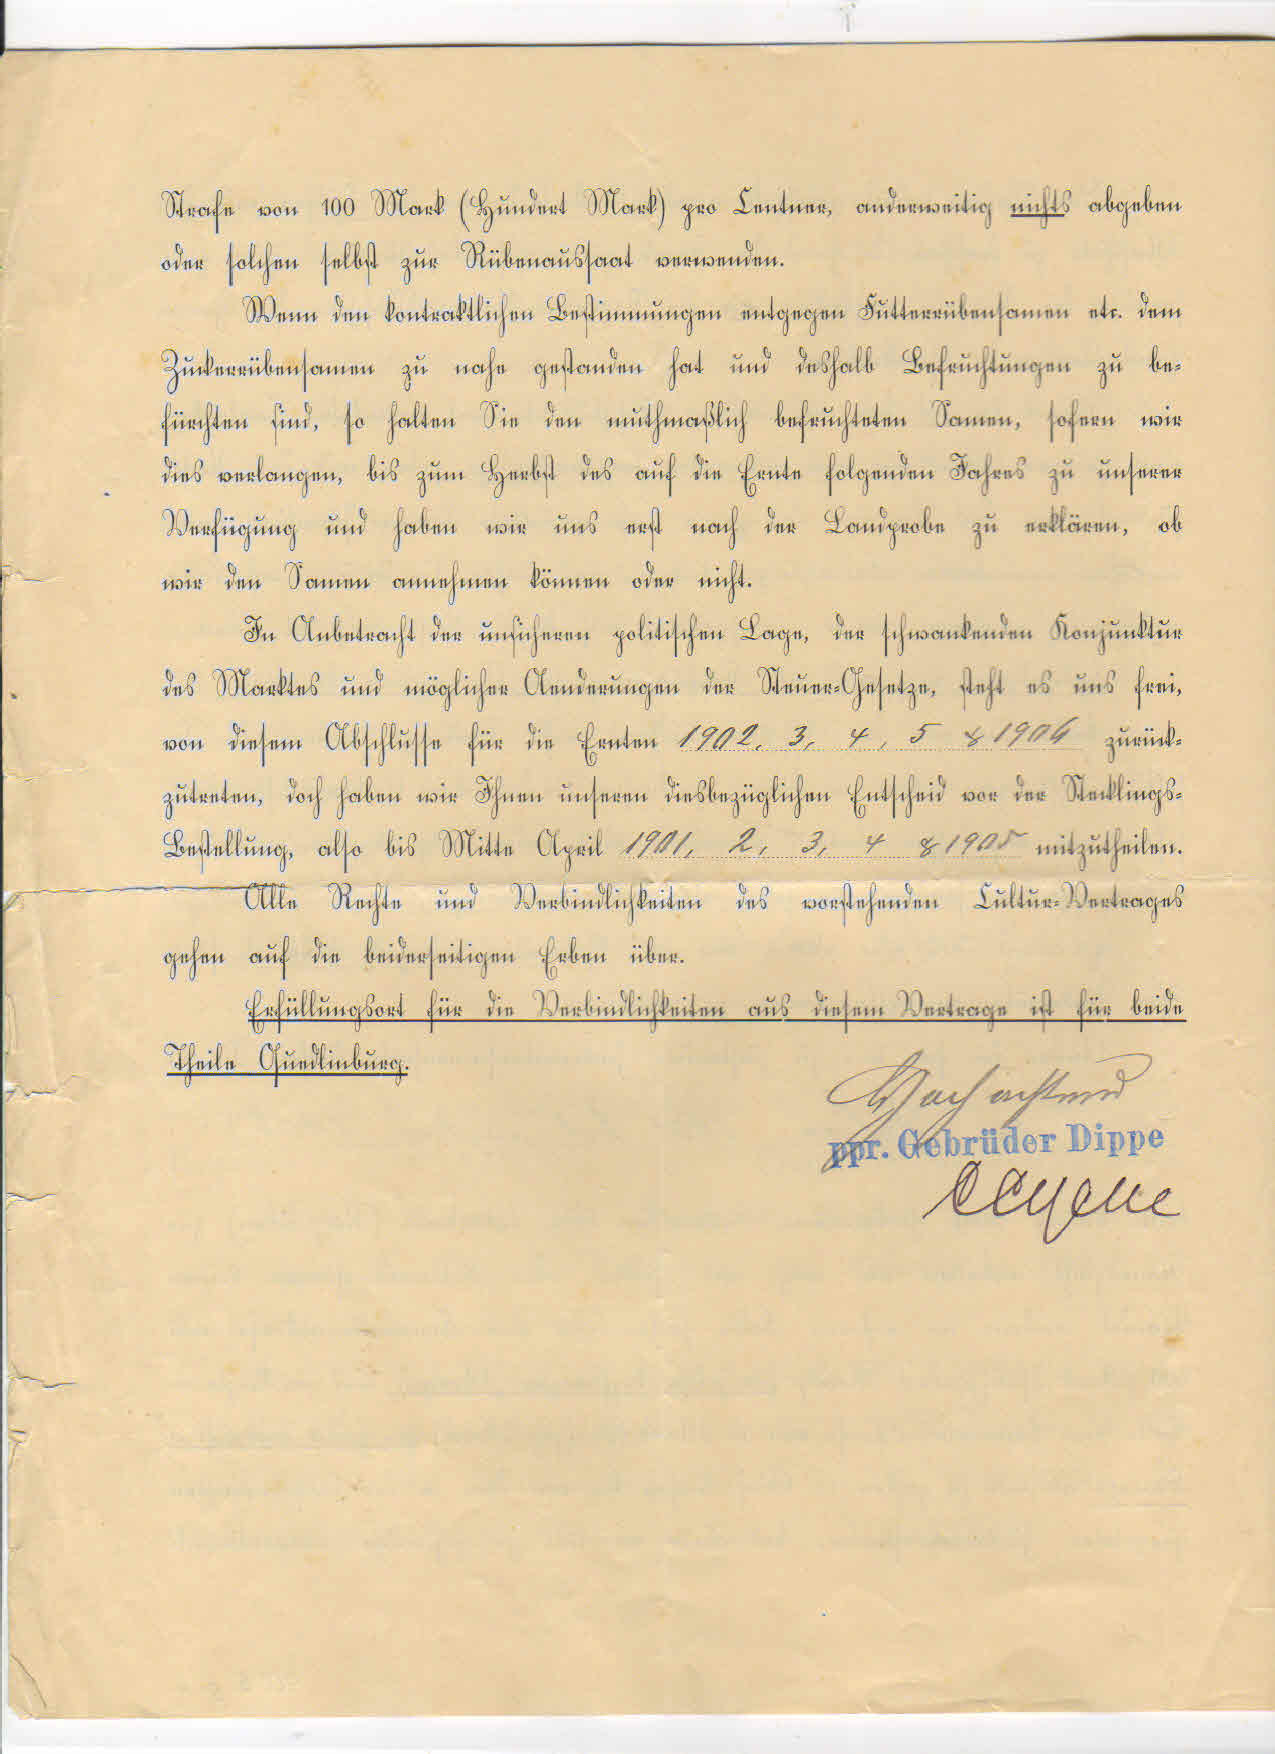 Strafe von 100 Mark (Hundert Mark) pro Centner, anderweitig nichts abgeben
oder solchen selbst zur Rübenaussaat verwenden.
Wenn den kontraktlichen Bestimmungen entgegen Futterrübensamen etc. dem
Zuckerrübensamen zu nahe gestanden hat und deshalb Befruchtungen zu be-
fürchten sind, so halten Sie den muthmaßlich befruchteten Samen, sofern wir
dies verlangen, bis zum Herbst des auf die Ernte folgenden Jahres zu unserer
Verfügung und haben wir uns erst nach der Landprobe zu erklären, ob
wir den Samen annehmen können oder nicht.
In Anbetracht der unsicheren politischen Lage, der schwankenden Konjunktur
des Marktes und möglicher Aenderungen der Steuer-Gesetze, steht es uns frei,
von diesem Abschlusse für die Ernten 1902, 3, 4, 5 & 1906 zurück-
zutreten, doch haben wir Ihnen unseren diesbezüglichen Entscheid vor der Stecklings-
Bestellung, also bis Mitte April 1901, 2, 3, 4 & 1905 mitzutheilen.
Alle Rechte und Verbindlichkeiten des vorstehenden Cultur-Vertrages
gehen auf die beiderseitigen Erben über.
Erfüllungsort für die Verbindlichkeiten aus diesem Vertrage ist für beide
Theile Quedlinburg.
ppr. Gebrüder Dippe